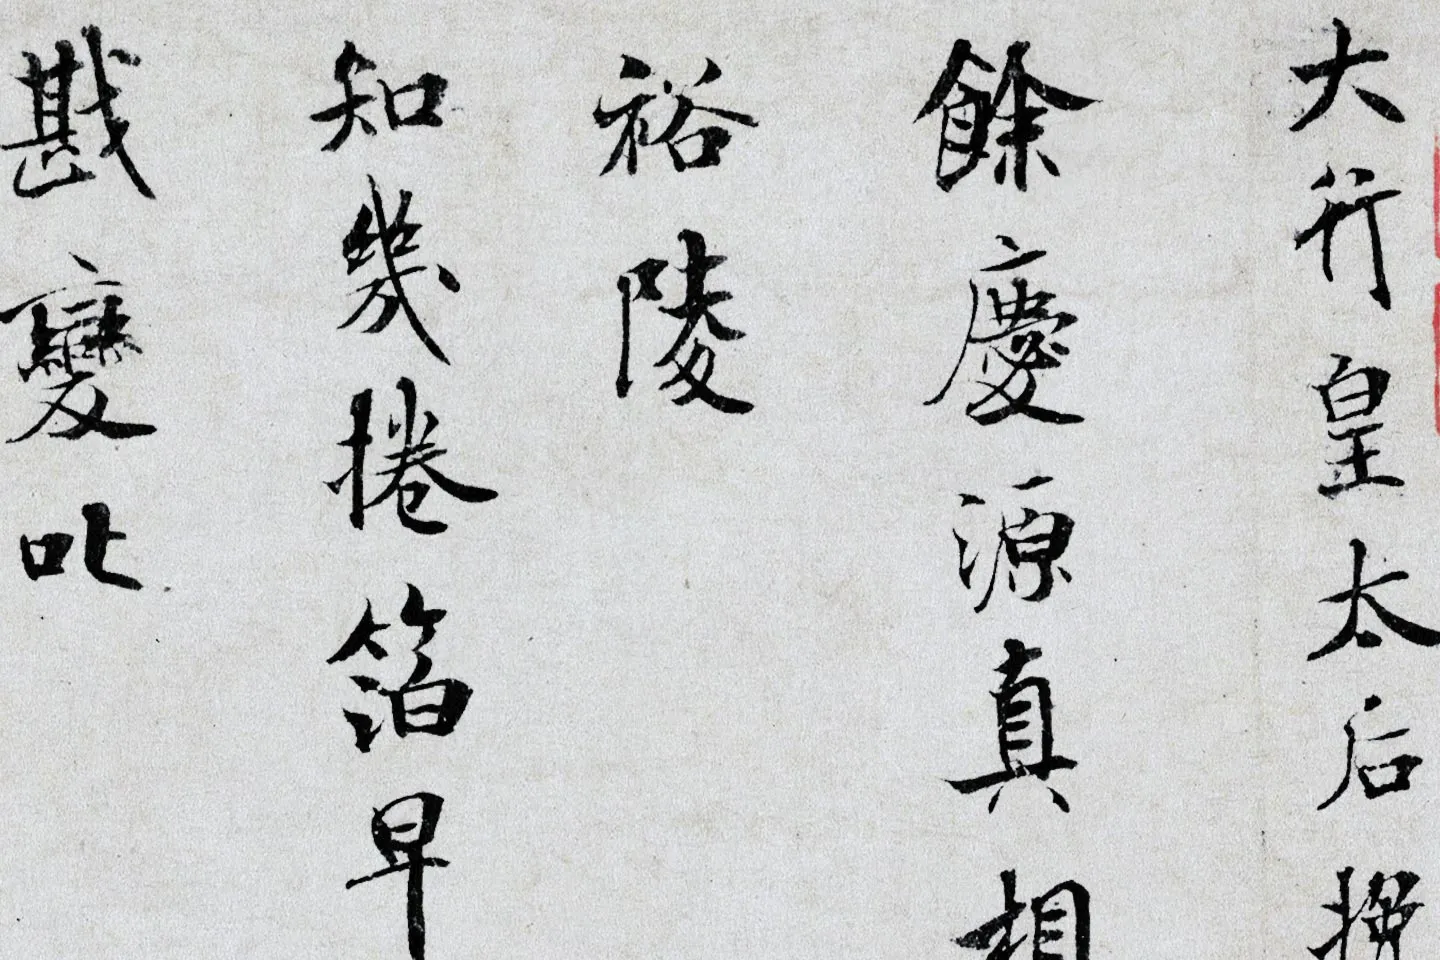 大行皇太后挽
餘慶源真相
裕陵
知幾捲箔早
戡變叱